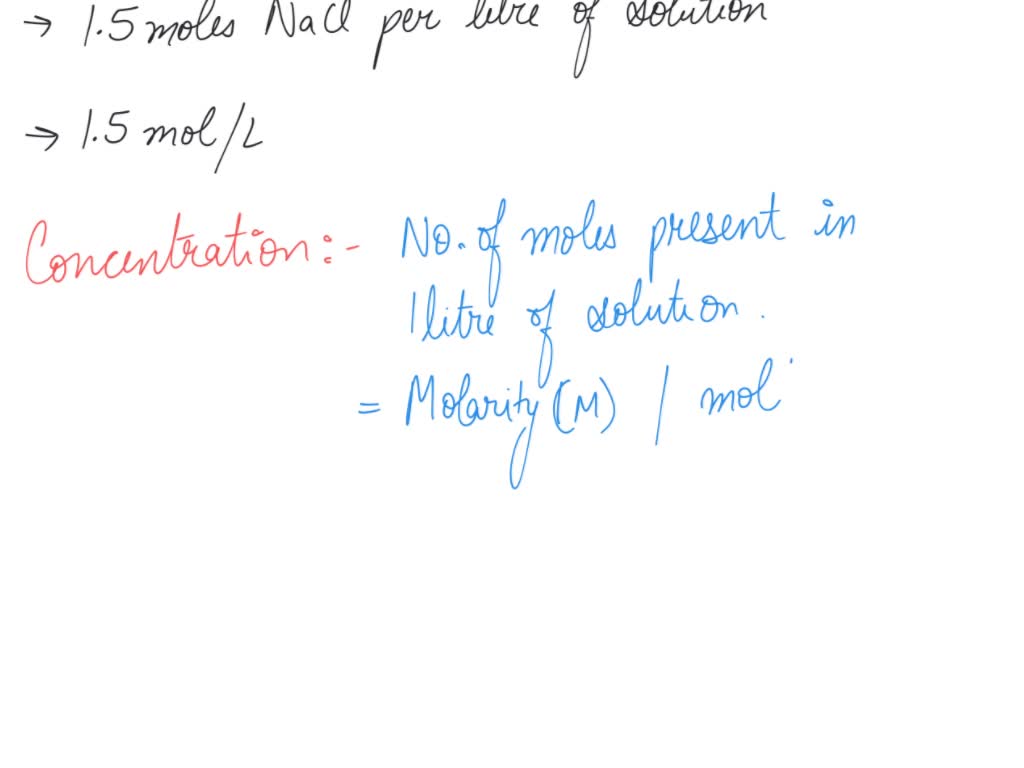 → 1.5 moles NaCl per litre of solution
→ 1.5 mol/L
Concentration:- No. of moles present in
1 litre of solution.
= Molarity (M) / mol